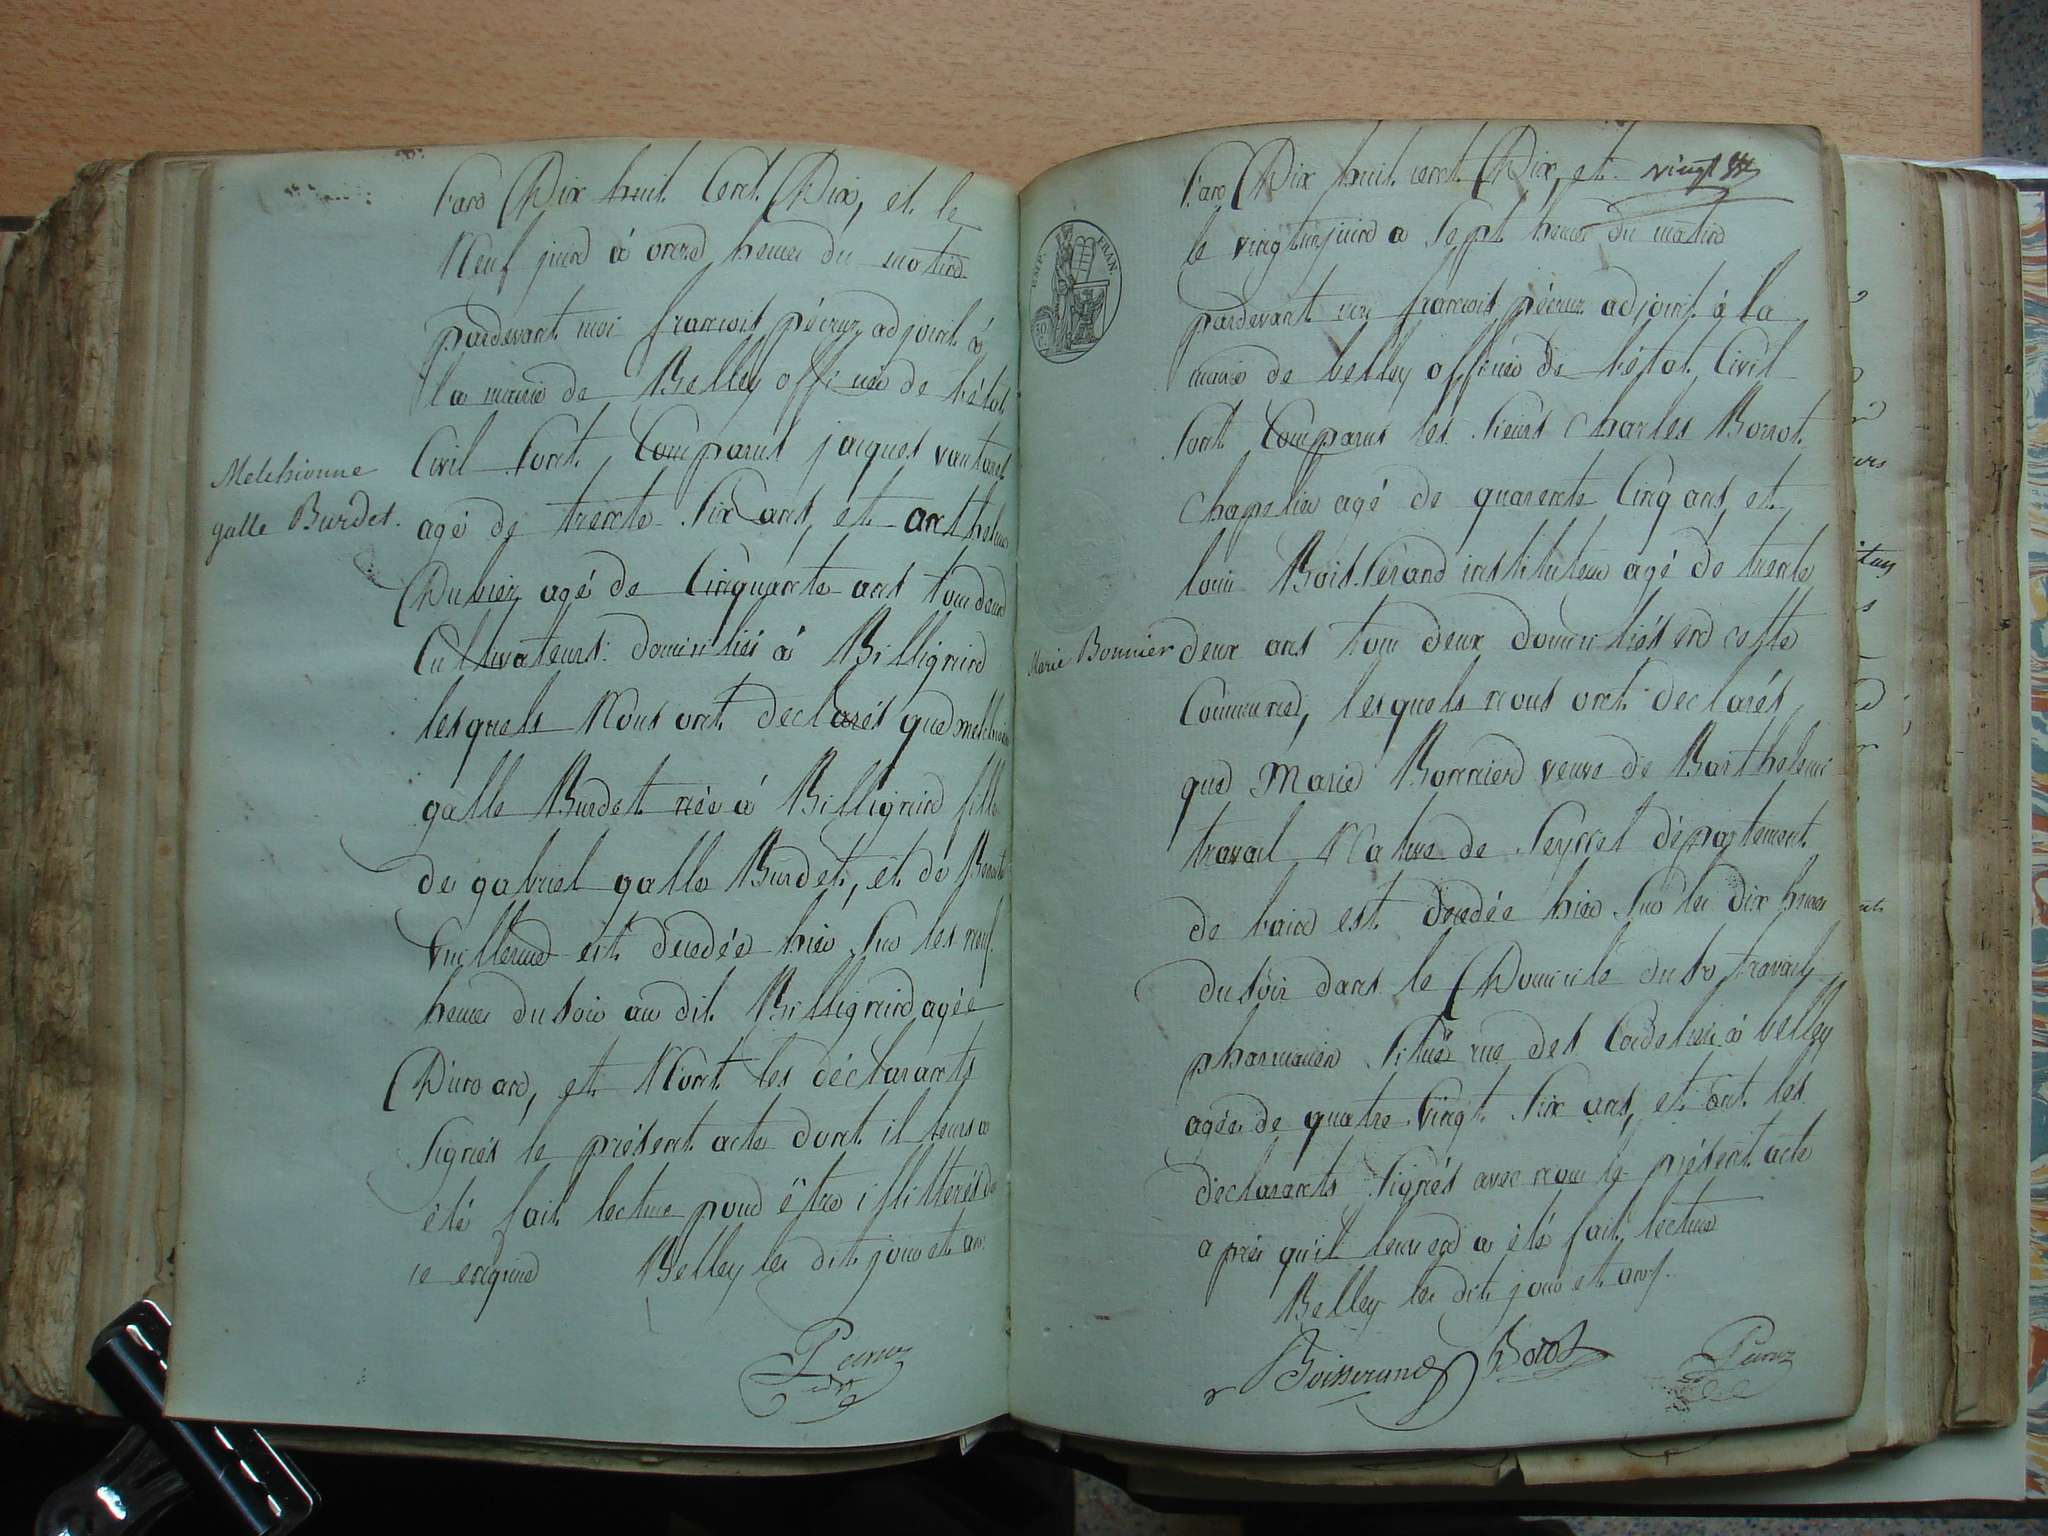 L'an Dix huit Cent Dix, et le
Neuf juin à onze heures du matin
pardevant moi françois pécruz adjoint à
la mairie de Belley officier de l'état
Civil Sont Comparus jacques
agé de trente Six ans, et anthelme
Dubiez agé de Cinquante ans tou deux
Cultivateurs domiciliés à Billignin
lesquels Nous ont declarés que melchionne
galle Burdet née à Billignin fille
de gabriel galle Burdet, et de Benoite
Vuillerme est decedée hier Sur les neuf
heures du soir au dit Billignin agée
D'un an, et N'ont les déclarants
Signés le présent acte dont il leurs a
été fait lecture pour être illitterés de
ce enquis Belley les dit jour et an
Pecruz
adj
Melchionne
galle Burdet.
L'an Dix huit cent Dix, et vingt
le vingt un juin a Sept heures du matin
pardevant nou françois pécruz adjoint à la
mairie de belley officier de l'état Civil
Sont Comparus les Sieurs Charles Borrot
Chapelier agé de quarente Cinq ans, et
louis Bois Serand instituteur agé de trente
deux ans tou deux domiciliés en cette
Commune, lesquels nous ont declarés
que Marie Bonnier veuve de Barthelemi
travail Native de Seyssel département
de l'ain est decedée hier Sur les dix heures
du soir dans le Domicile du Sr travail
pharmacien Situé rue des Cordeliers à belley
agée de quatre Vingt Six ans, et ont les
déclarants Signés avec nou le présent acte
a près qu'il leur en a été fait lecture
Belley les dit jour et an
Boisserand Borot
Pecruz
Marie Bonnier
EMP. FRAN.
50